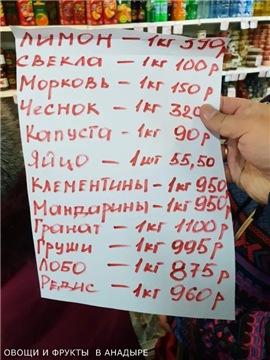 ЛИМОН – 1кг 590р
СВЕКЛА – 1кг 100р
Морковь – 1кг 150р
Чеснок – 1кг 320
Капуста – 1кг 90р
Яйцо – 1шт 55,50
КЛЕМЕНТИНЫ – 1кг 950
Мандарины – 1кг 950р
Гранат – 1кг 1100р
Груши – 1кг 995р
ЛОБО – 1кг 875р
Редис – 1кг 960р
ОВОЩИ И ФРУКТЫ В АНАДЫРЕ